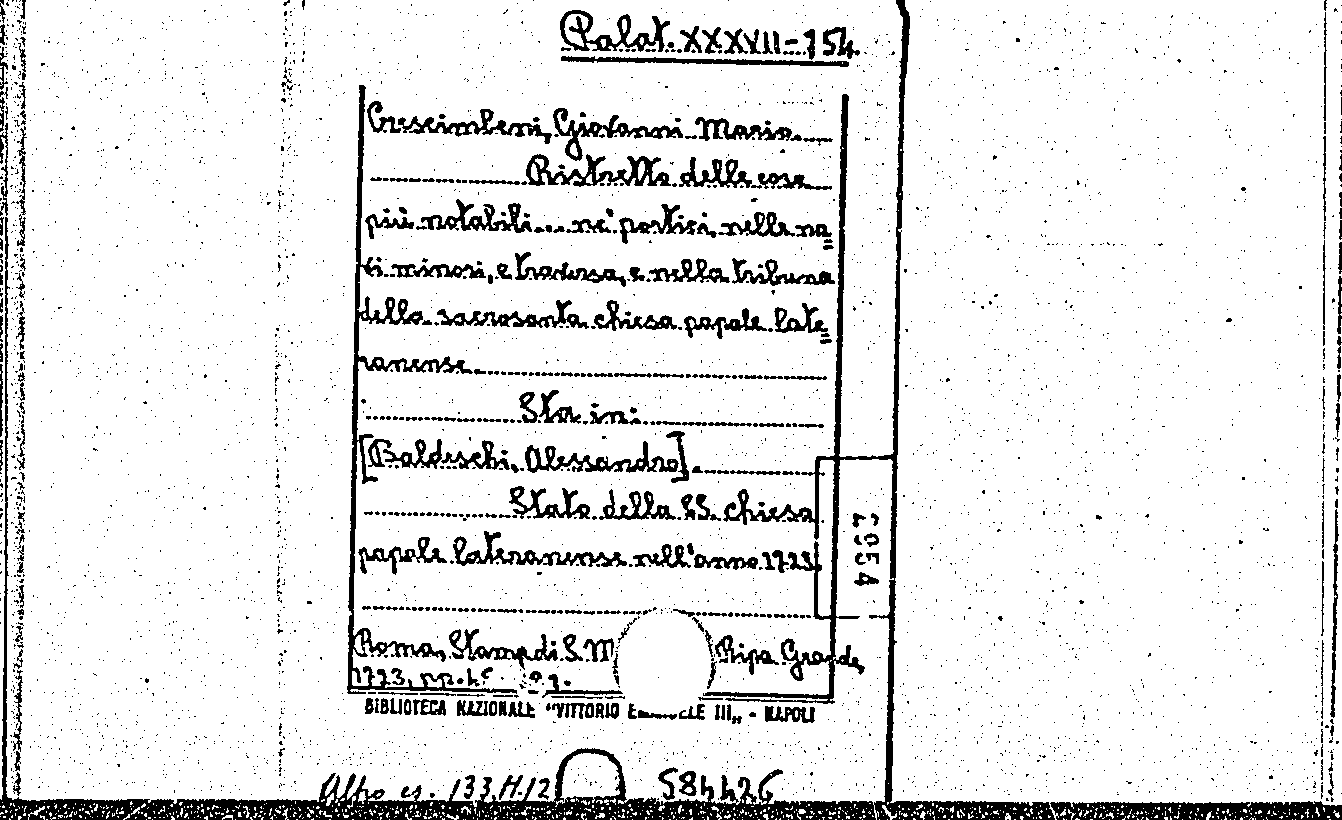 Palat. XXXVII-154
Crescimbeni, Giovanni Mario.
Ristretto delle cose
più notabili... ne' portici, nelle na=
vi minori, e traversa, e nella tribuna
della sacrosanta chiesa papale late=
ranense.
Sta in:
[Baldeschi, Alessandro].
Stato della SS. chiesa
papale lateranense nell'anno 1723.
2954
Roma, Stamp. di S. M Ripa Grande,
1723, pp.
BIBLIOTECA NAZIONALE "VITTORIO EMANUELE III„ - NAPOLI
Altro es. 133.H.12
584426